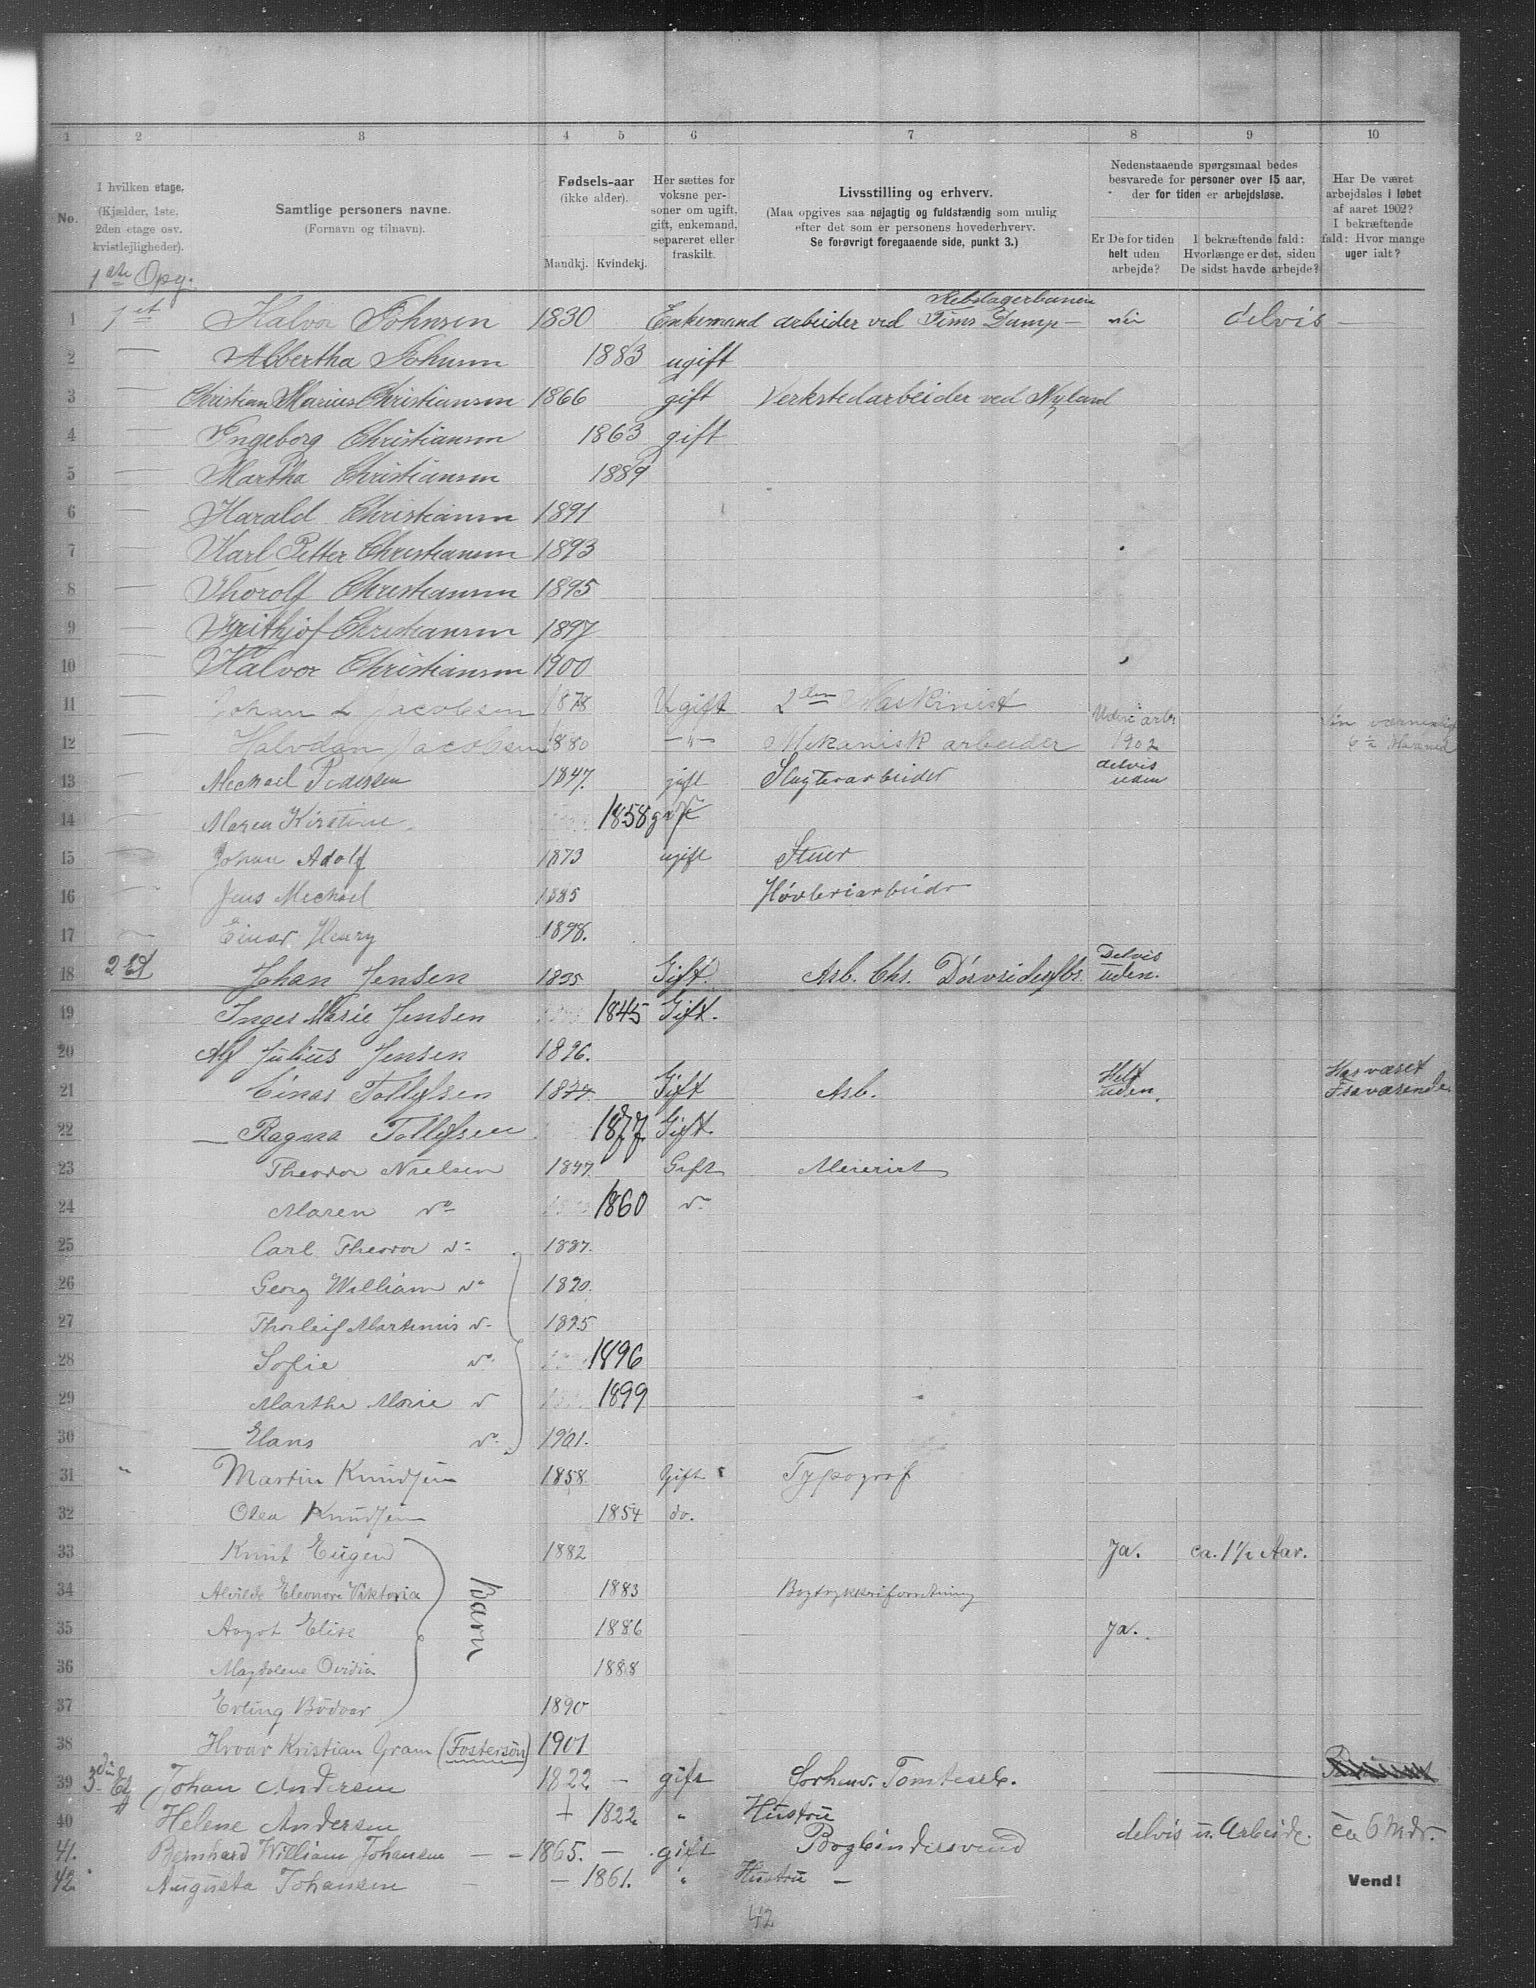 1 2 3 4 5 6 7 8 9 10
No.
I hvilken etage.
(Kjælder, 1ste,
2den etage osv.
kvistlejligheder).
Samtlige personers navne.
(Fornavn og tilnavn).
Fødsels-aar
(ikke alder).
Mandkj. Kvindekj.
Her sættes for
voksne per-
soner om ugift,
gift, enkemand,
separeret eller
fraskilt.
Livsstilling og erhverv.
(Maa opgives saa nøjagtig og fuldstændig som mulig
efter det som er personens hovederhverv.
Se forøvrigt foregaaende side, punkt 3.)
Nedenstaaende spørgsmaal bedes
besvarede for personer over 15 aar,
der for tiden er arbejdsløse.
Er De for tiden
helt uden
arbejde?
I bekræftende fald:
Hvorlænge er det, siden
De sidst havde arbejde?
Har De været
arbejdsløs i løbet
af aaret 1902?
I bekræftende
fald: Hvor mange
uger ialt?
1ste Opg.
Rebslagerbanen
1 1 et Halvor Johnsen 1830 Enkemand arbeider ved Fims Damp- nei delvis —
2 — Albertha Johnsen 1883 ugift
3 — Christian Marius Christiansen 1866 gift Verkstedarbeider ved Nyland
4 — Ingeborg Christiansen 1863 gift
5 — Martha Christiansen 1889
6 — Harald Christiansen 1891
7 — Karl Petter Christiansen 1893
8 — Thorolf Christiansen 1895
9 — Frithjof Christiansen 1897
10 — Halvor Christiansen 1900
11 — Johan L Jacobsen 1878 Ugift 2den Maskinist
12 — Halvdan Jacobsen 1880 -"- Mekanisk arbeider 1902
13 — Mechael Pedersen 1847. gift Slagterarbeider delvis uden
14 — Maren Kirstine 1858 gift
15 — Johan Adolf 1873 ugift Stuer
16 — Jens Mechael 1885 Høvleriarbeider
17 — Einar Henry 1898.
18 2 Et Johan Jensen 1835 Gift. Arb. Chs. Delvis uden.
19 Inges Marie Jensen 1845 Gift.
20 Alf Julius Jensen 1896.
21 Einar Tollefsen 1877. Gift Arb. Helt uden. Har været Fraværende
22 — Ragna Tollefsen 1877. Gift.
23 Theodor Nielsen 1847. Gift Meierist
24 Maren do 1860 do
25 Carl Theodor do 1887.
26 Georg William do 1890.
27 Thorleif Martinius do 1895
28 Sofie do 1896
29 Marthe Marie do 1899
30 — Hans do 1901.
31 " Martin Knudsen 1858 Gift Typograf
32 Olea Knudsen 1854 do.
33 Knut Eugen 1882 Ja. ca. 1½ Aar.
34 Alvilde Eleonore Viktoria 1883 Bogtrykkriforretning
35 Aagot Elise 1886 Ja.
36 Magdalene Ovidia 1888
37 Erling Bødvar 1890
Barn
38 Hroar Kristian Gram (Fostersøn) 1901
39 3die Et Johan Andersen 1822 — gift Forhenv. Tomtesslb. —
40 Helene Andersen + 1822 " Hustru
41. Bernhard William Johansen — - 1865. — gift Bogbindersvend delvis u. Arbeide. ca 6 Mdr.
42. Augusta Johansen — — 1861. " Hustru —
Vend!
42